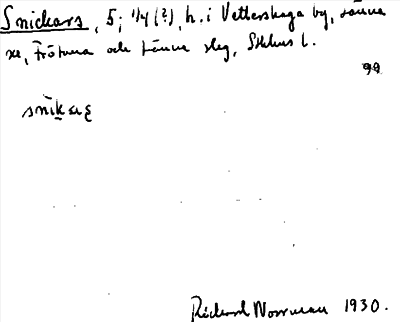 Snickars, 5; 1/4 (?), h. i Vettershaga by, Länna
sn, Frötuna och Länna slg, Sthlms l.
99
snikaʂ
Rickard Norrman 1930.